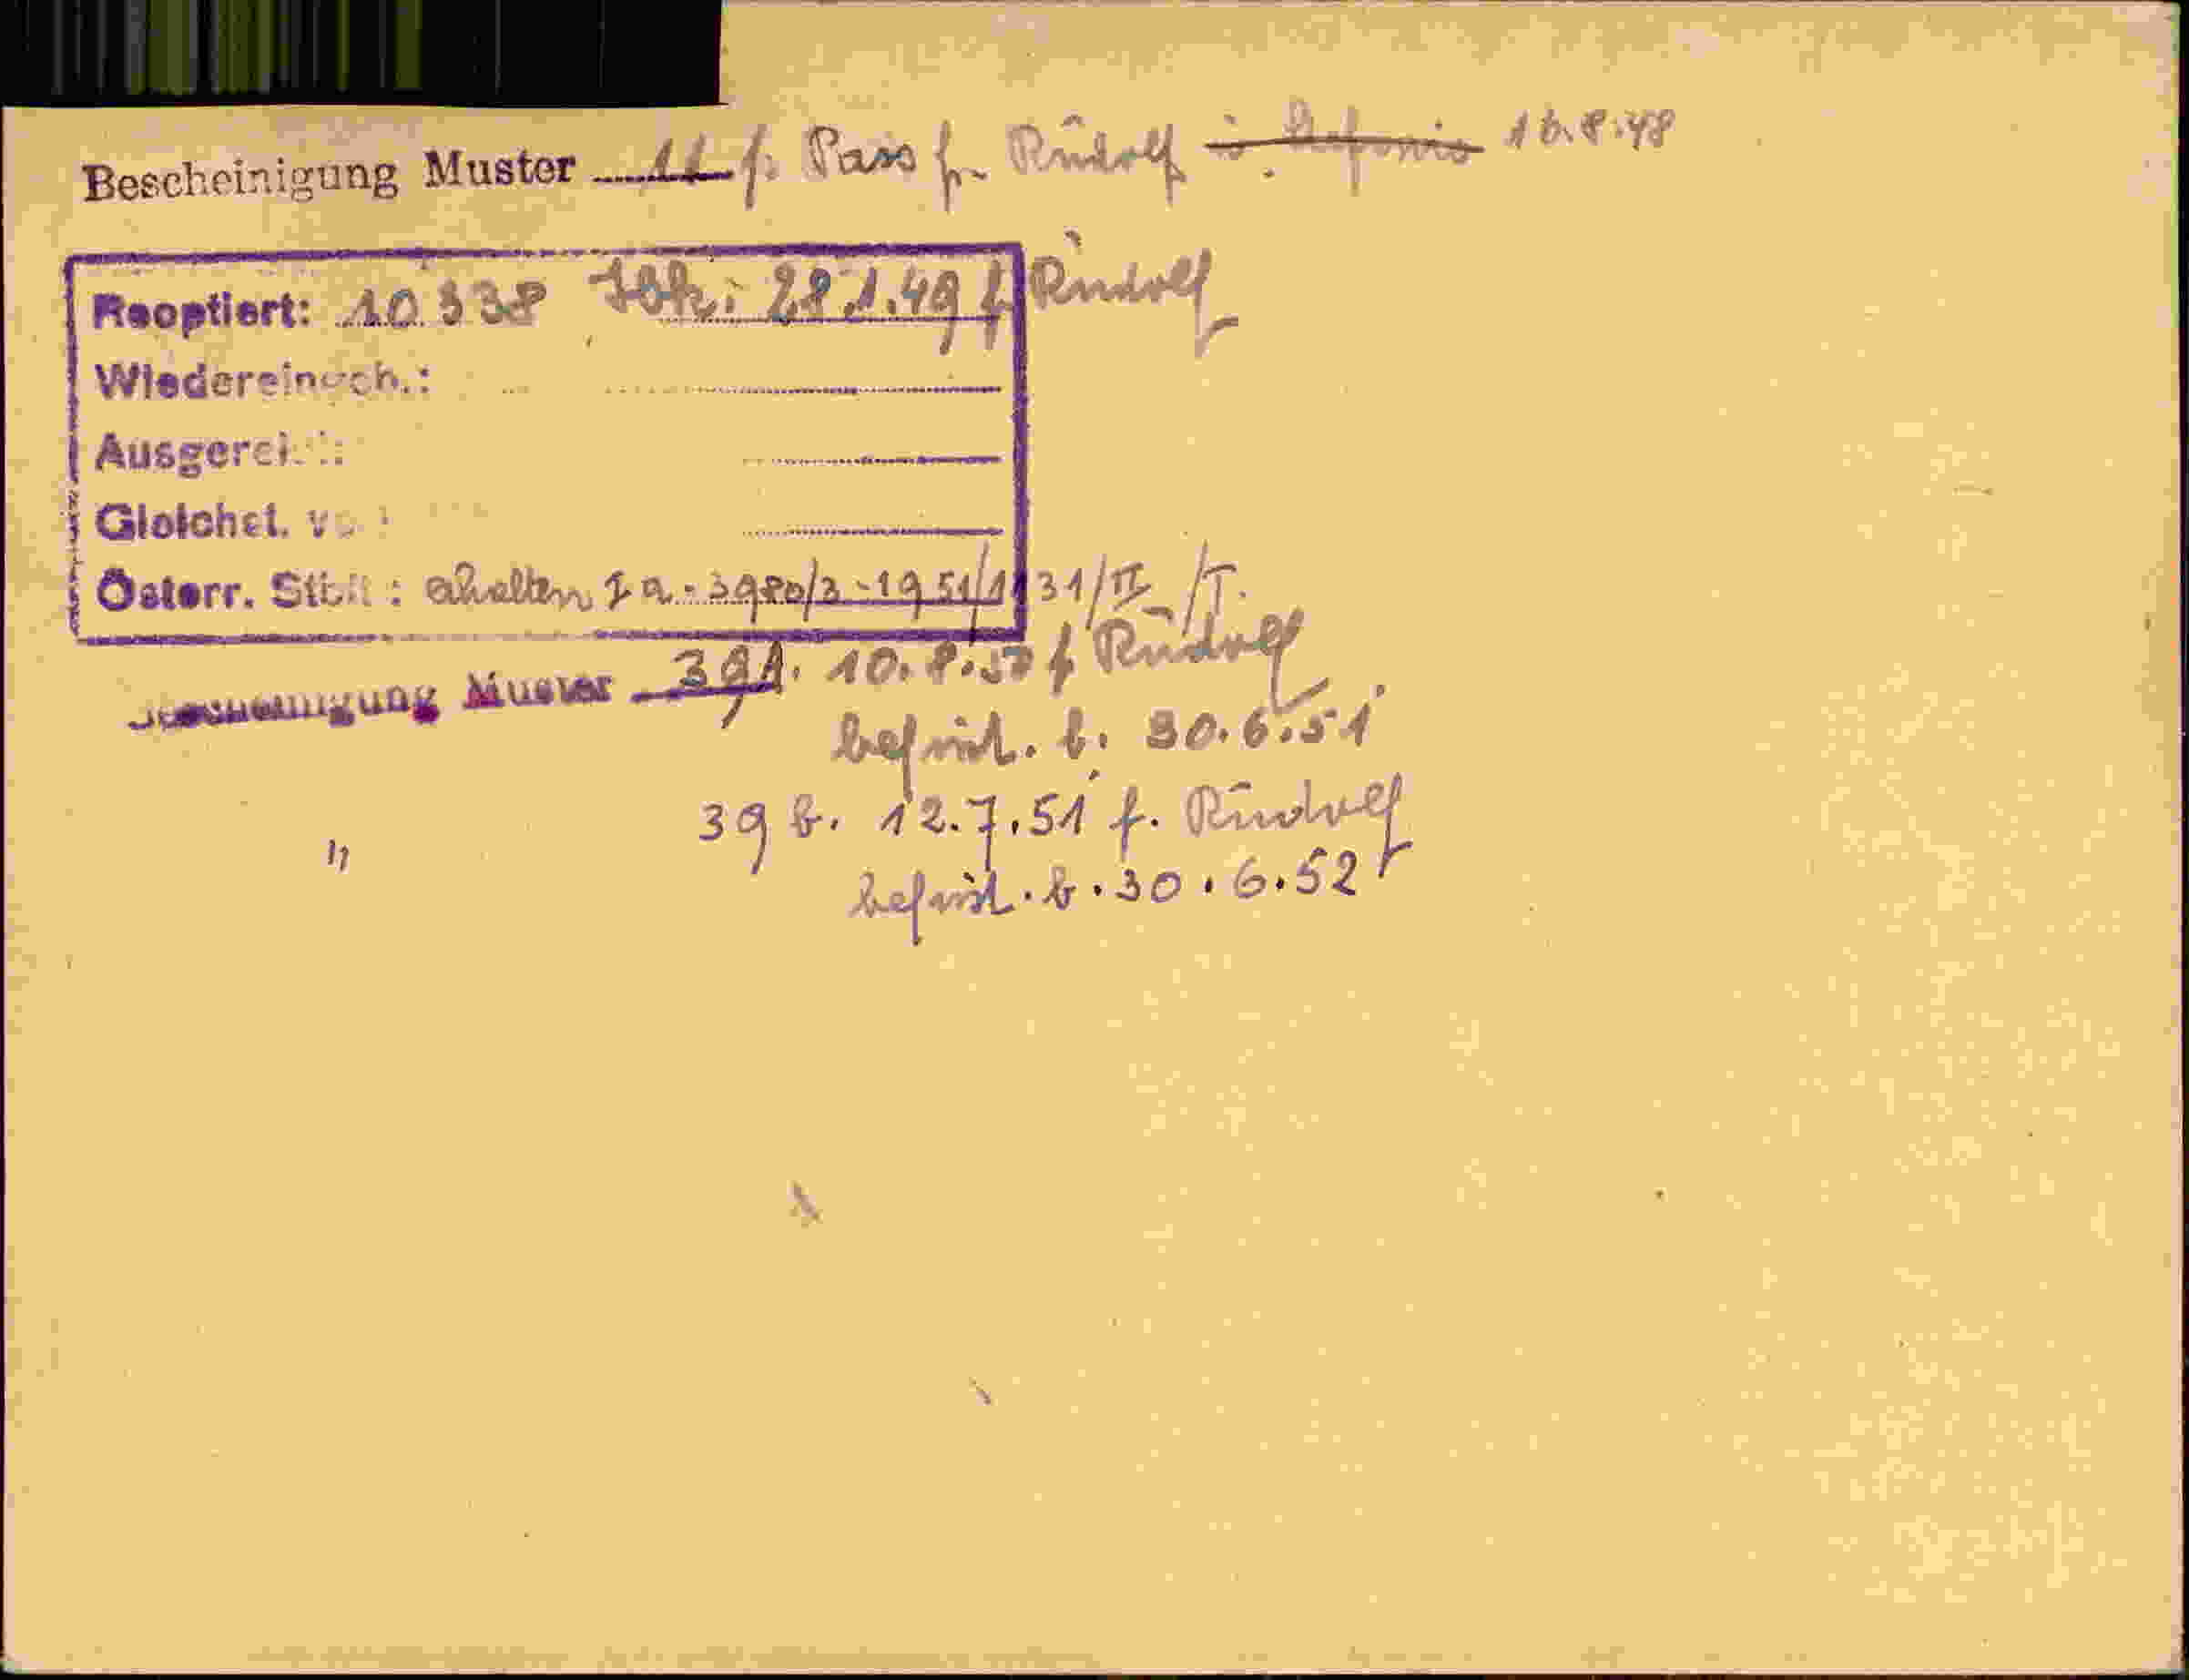 Bescheinigung Muster 11 f. Pass f. Rudolf 16.8.48
Reoptiert: 10 338 28.1.49 f Rudolf
Wiedereingeb.:
Ausgereist:
Gleichst. v
Österr. Stb : erhalten I a - 3980/3 - 1951/1131/II /I.
Bescheinigung Muster 39A. 10.8.50 f Rudolf
befrist. b. 30.6.51
39 b. 12.7.51 f. Rudolf
befrist. b. 30.6.52